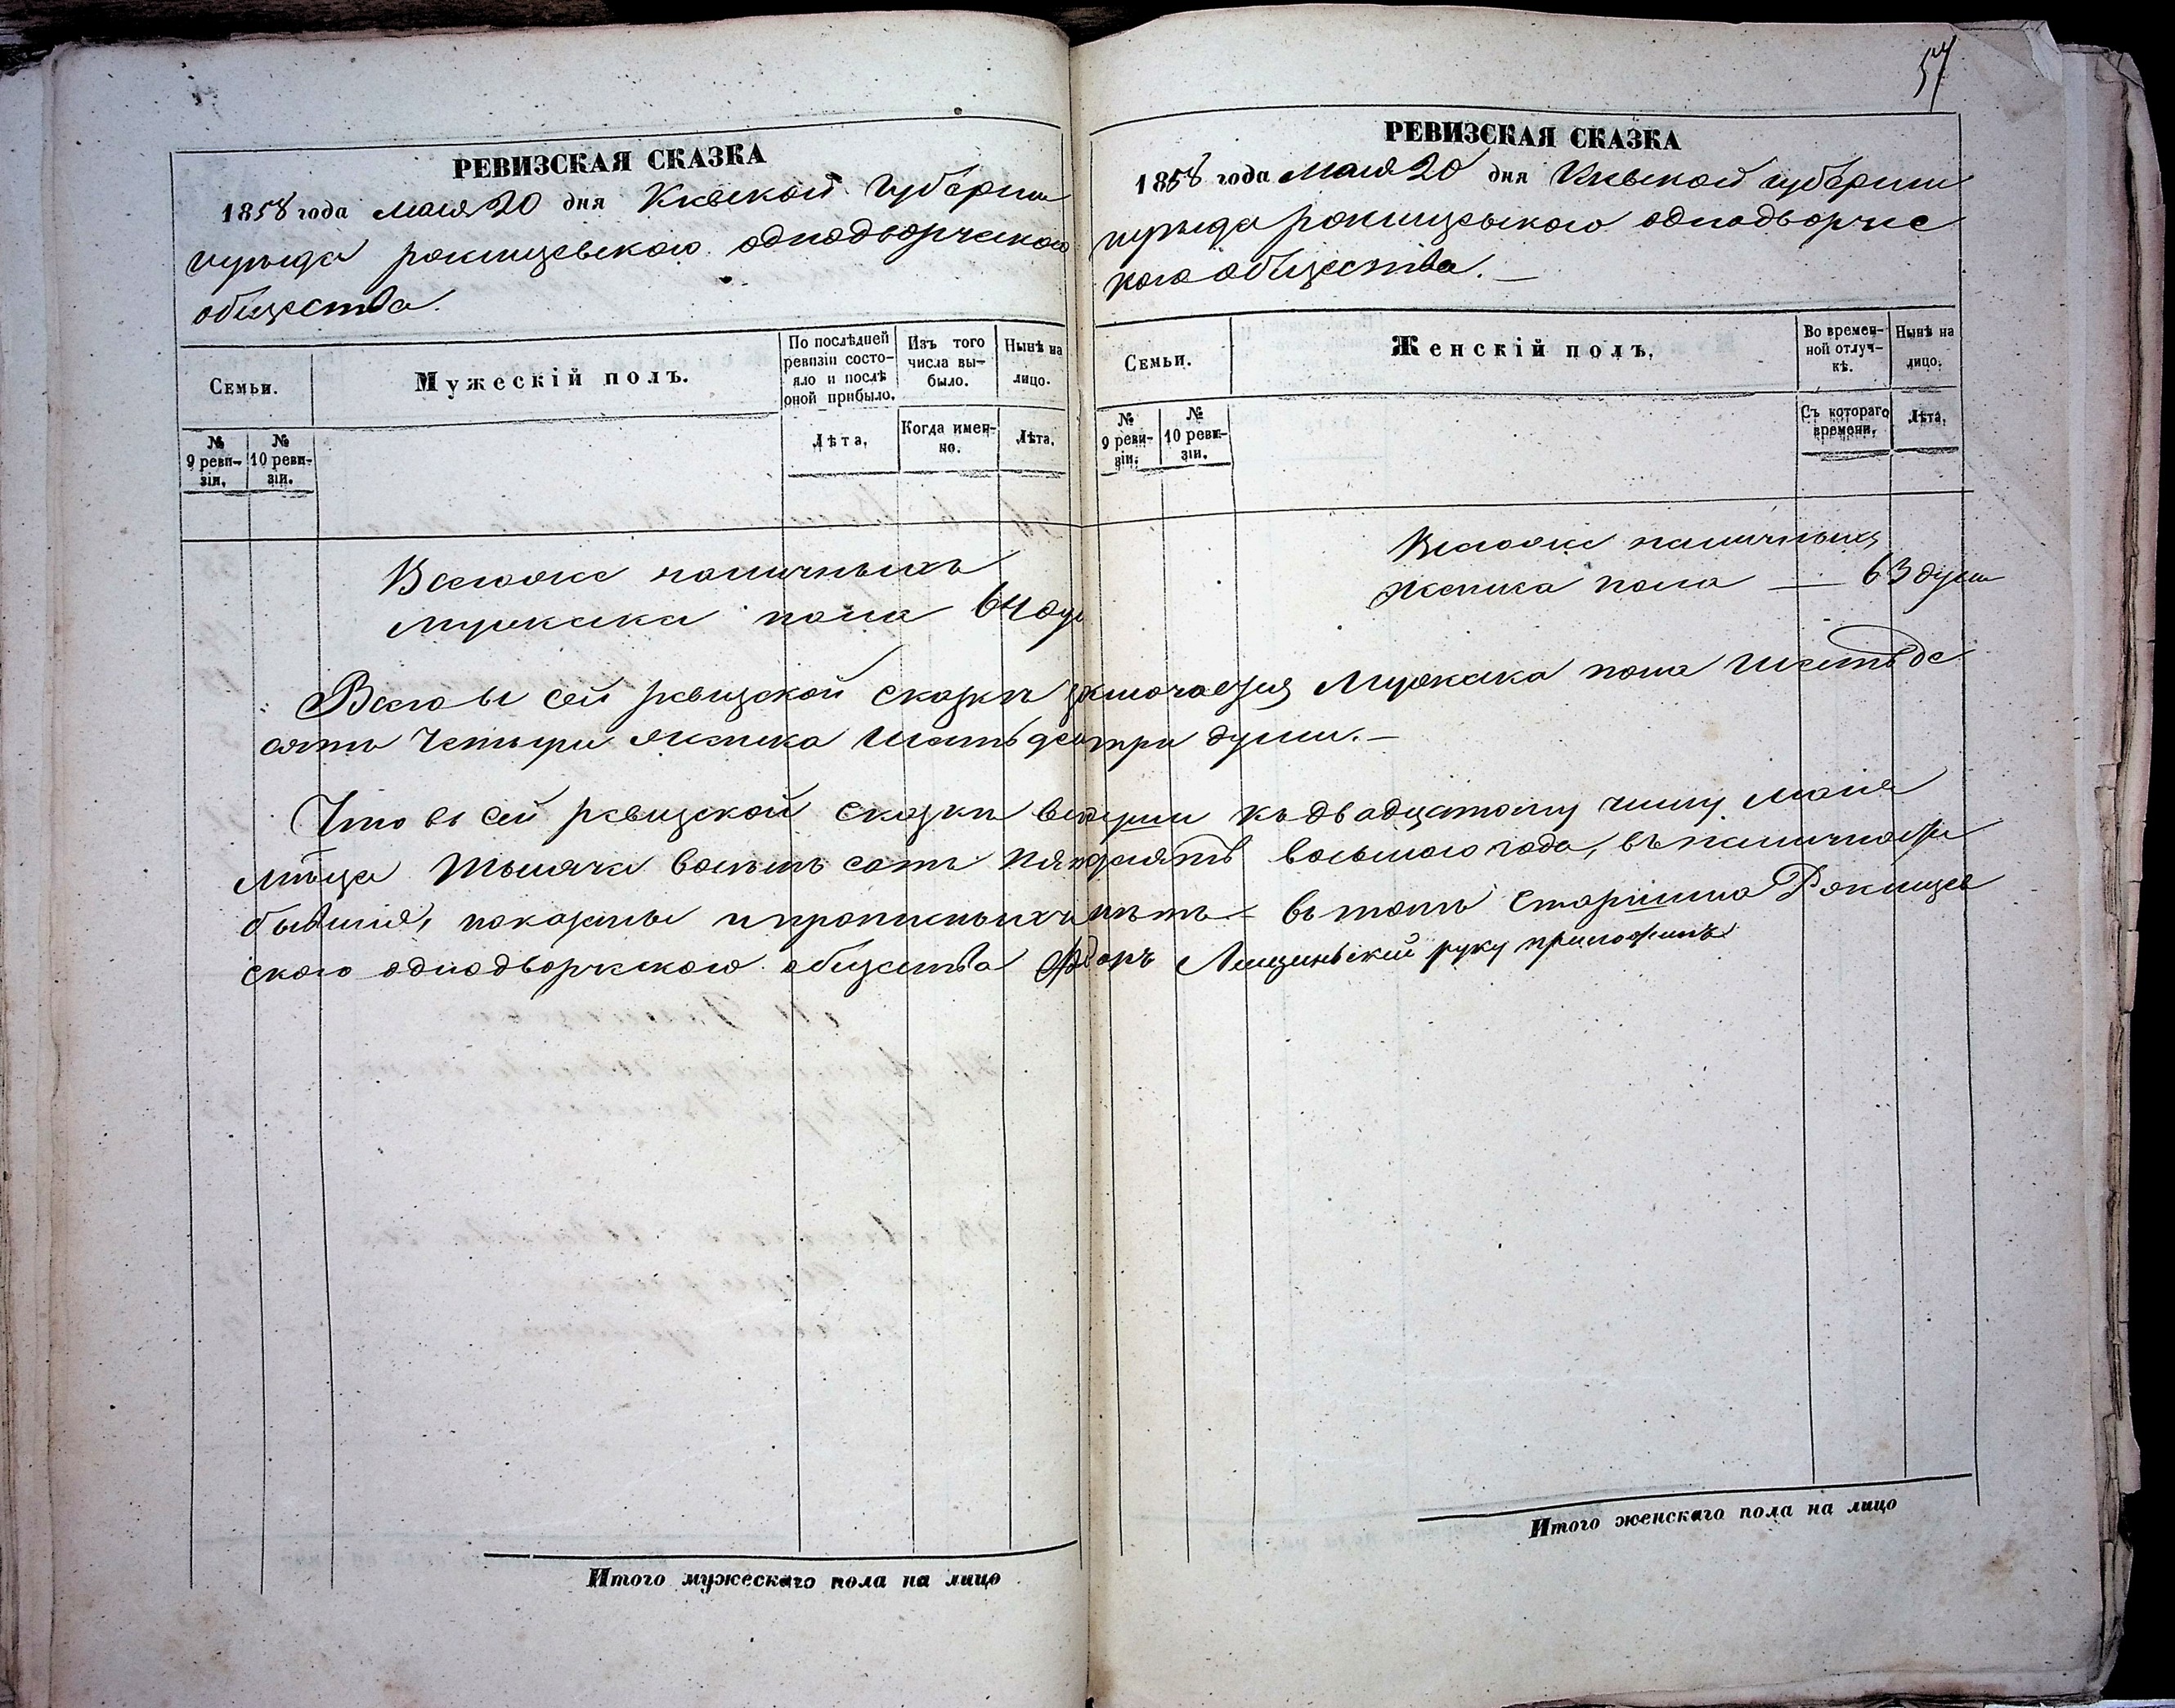 РЕВИЗСКАЯ СКАЗКА
1858 года мая 20 дня Киевской губернии
и уезда рокищевского однодворческого
общества.
Семьи.
Мужескій полъ.
По послѣдней ревизіи состояло и послѣ оной прибыло.
Изъ того числа выбыло.
Нынѣ на лицо.
№ 9 ревизіи.
№ 10 ревизіи.
Лѣта.
Когда именно.
Лѣта.
Всегоже наличныхъ
мужеска пола 64 ду
57
РЕВИЗСКАЯ СКАЗКА
1858 года мая 20 дня Киевской губернии
и уезда рокищевского однодворче
кого общества. —
Семьи.
Женскій полъ.
Во временной отлучкѣ.
Нынѣ на лицо.
№ 9 ревизіи.
№ 10 ревизіи.
Съ котораго времени.
Лѣта.
Всегоже наличныхъ
женска пола — 63 души
Всего въ сей ревизской сказкѣ заключается Мужеска пола шестьде
сятъ Четыри женска шестьдесятъ три души. —
Что въ сей ревизской сказки все души къ двадцатому числу мая
мѣсяца тысяча восемь сотъ пятдесятъ восьмого года, въ наличности
бывшия, показаны и прописныхъ нѣтъ — въ томъ Старшина Рокищев
ского однодворческого общества Фдоръ Лищинский руку приложилъ
Итого мужескаго пола на лицо
Итого женскаго пола на лицо